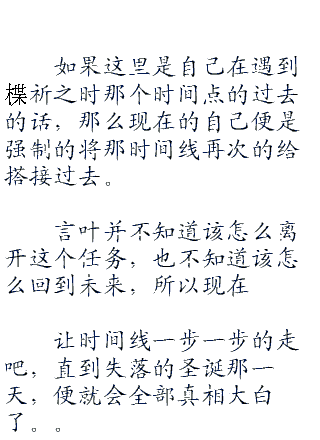 如果这里是自己在遇到
楪祈之时那个时间点的过去
的话，那么现在的自己便是
强制的将那时间线再次的给
搭接过去。
言叶并不知道该怎么离
开这个任务，也不知道该怎
么回到未来，所以现在
让时间线一步一步的走
吧，直到失落的圣诞那一
天，便就会全部真相大白
了。。